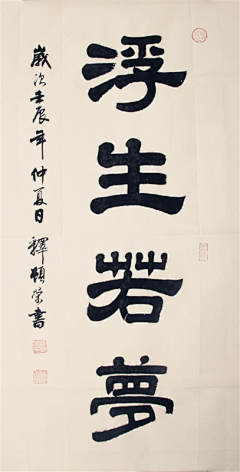 浮生若夢
歲次壬辰年仲夏日釋頓榮書